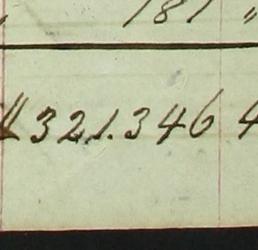 181 "
321.346 4